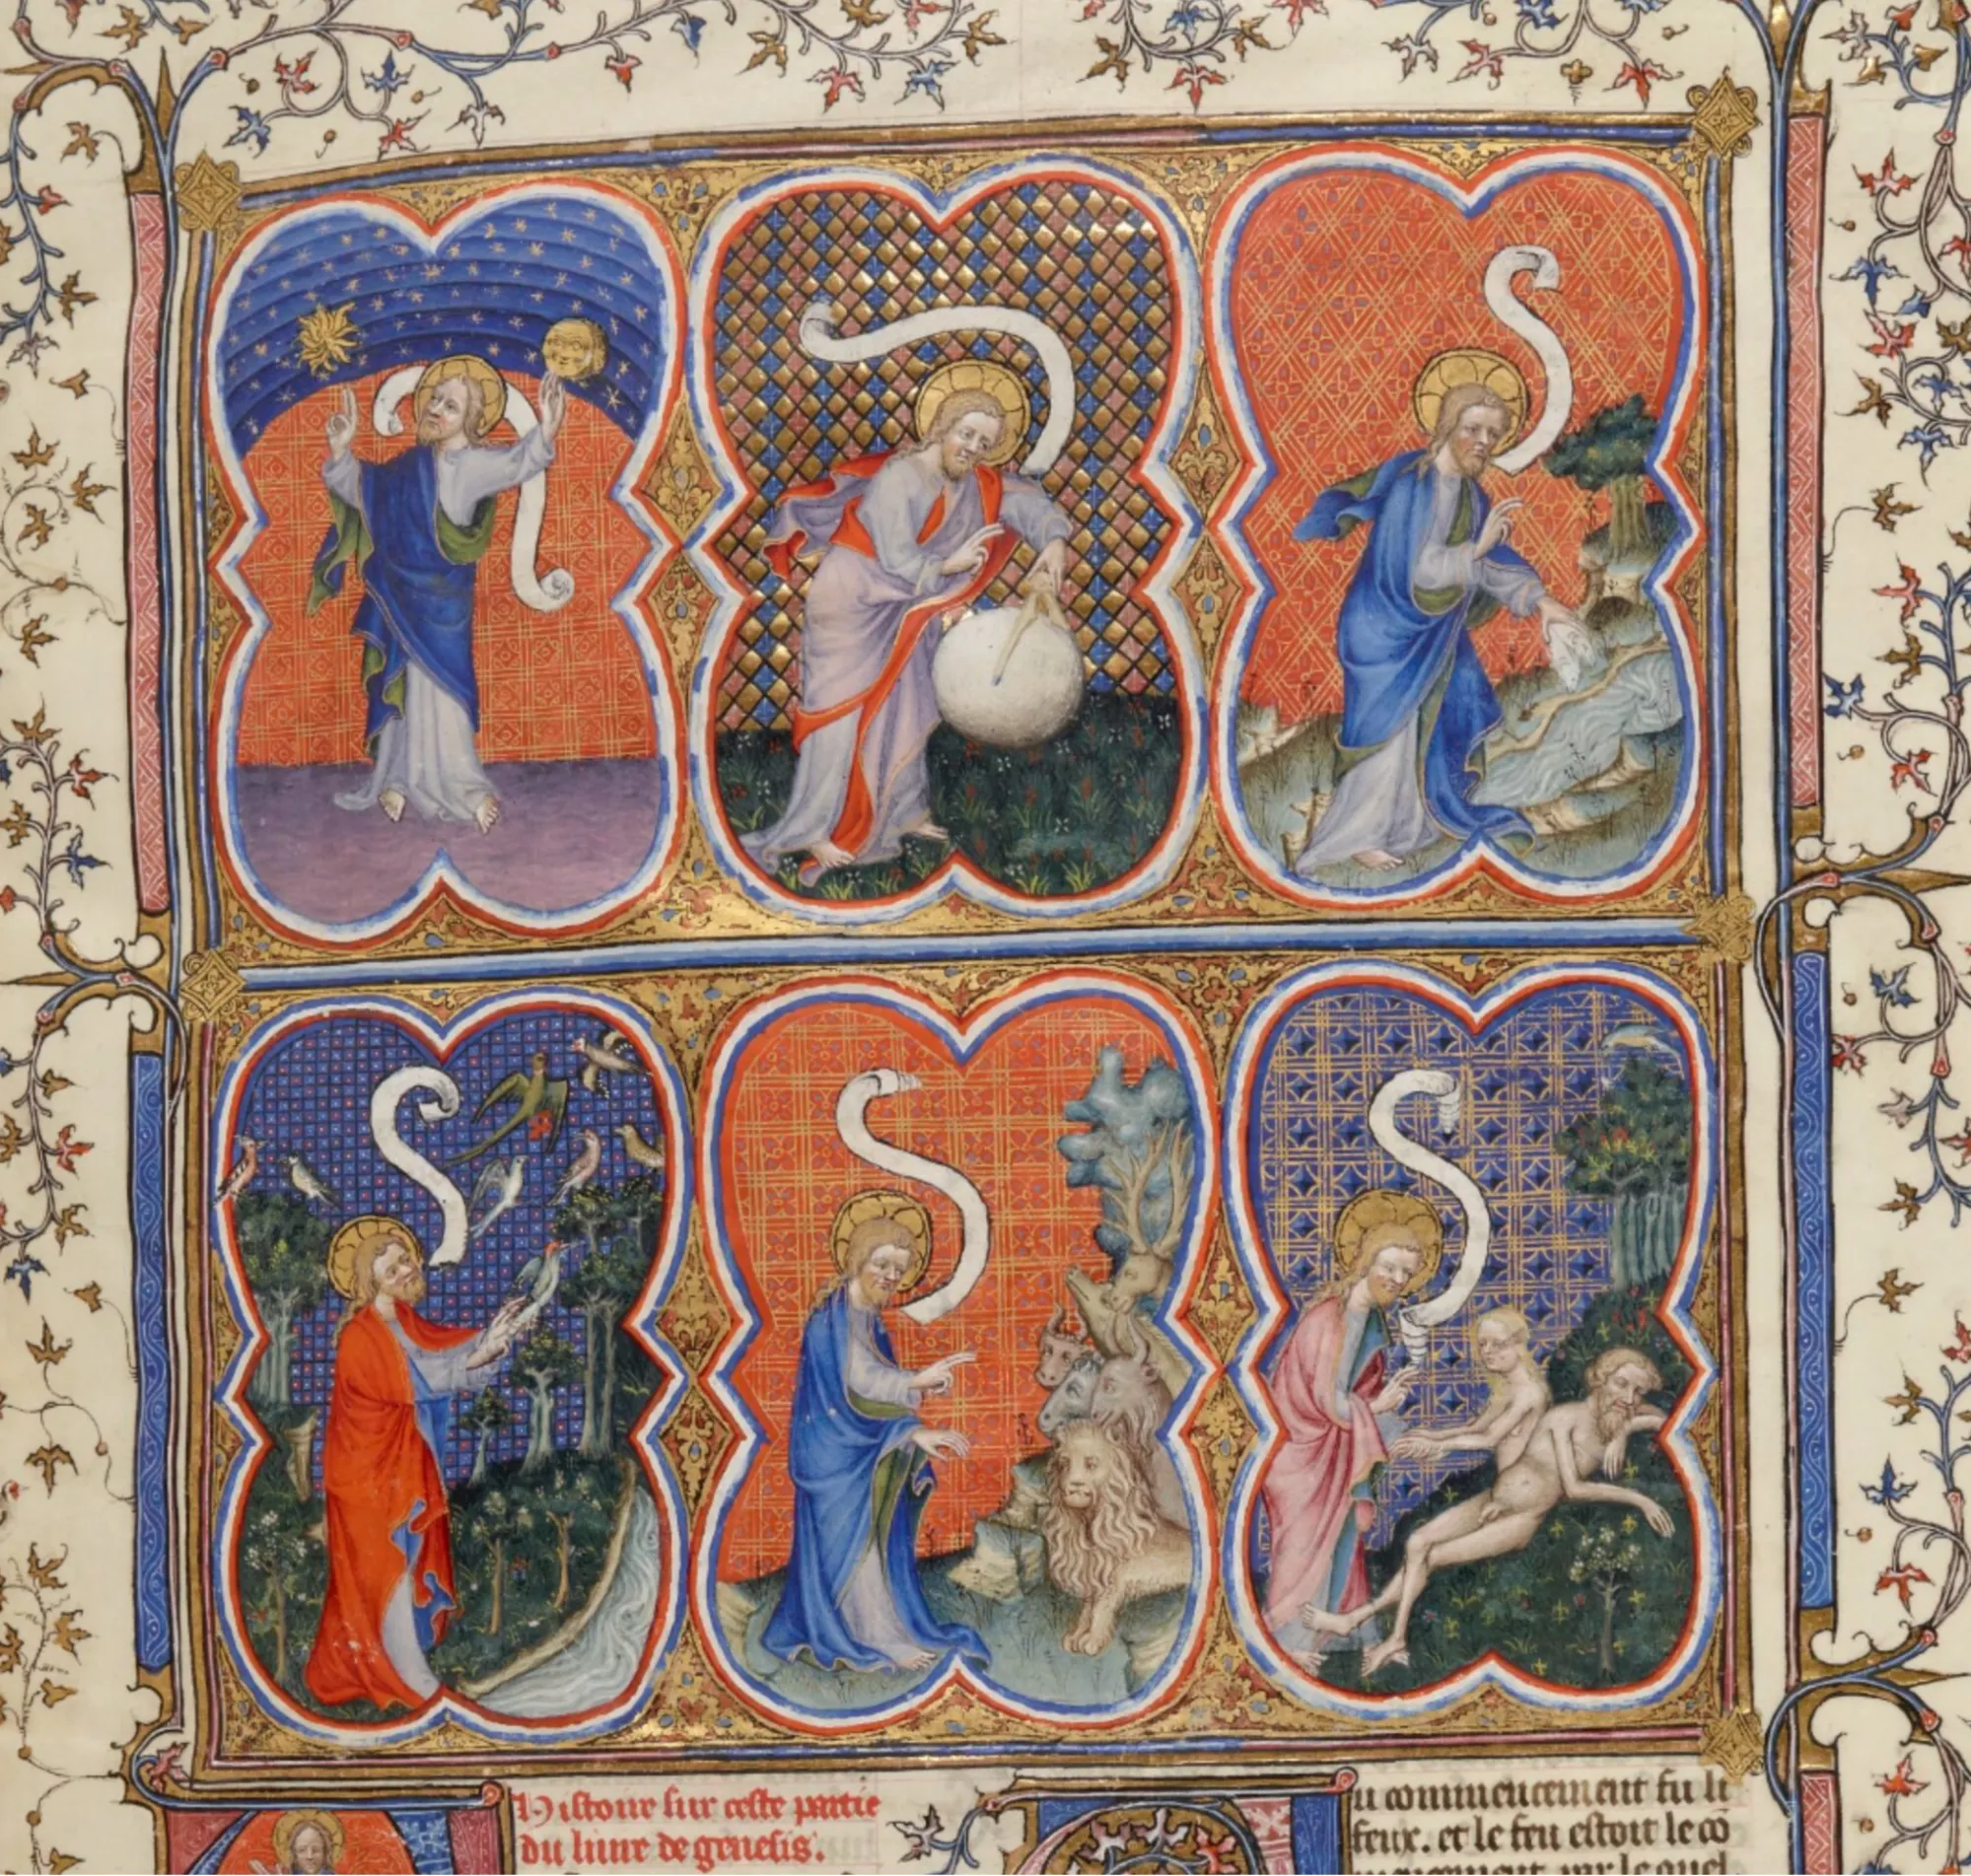 Histoire sur ceste partie
du liure de genesis.
u commencement fu li
feux. et le feu estoit le cō